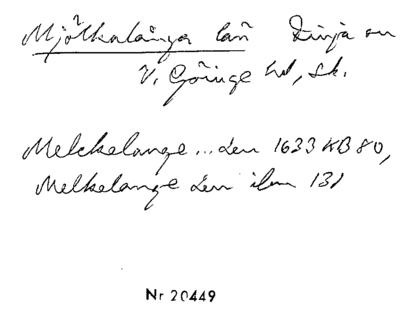 Mjölkalånga lañ Finja sn
V. Göinge hd, Sk.
Melckelange... den 1633 KB 80,
Melkelange den ibm 131
Nr 20449